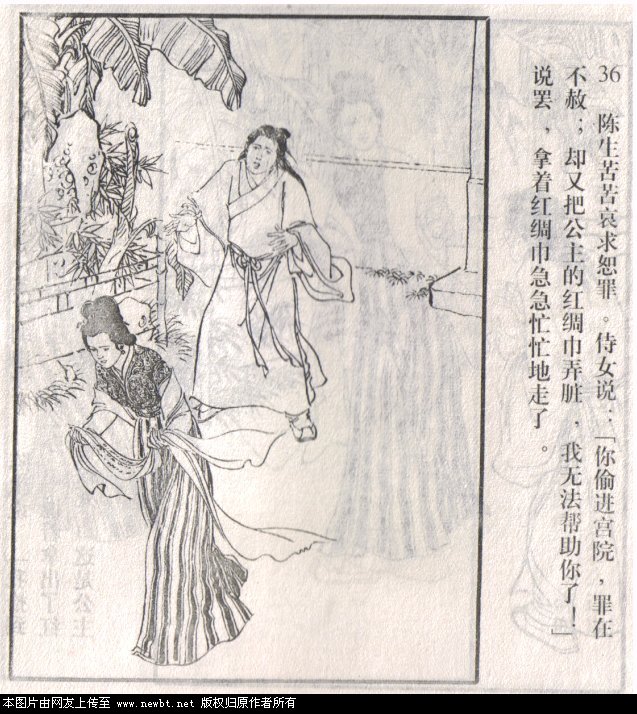 36 陈生苦苦哀求恕罪。侍女说：「你偷进宫院，罪在
不赦；却又把公主的红绸巾弄脏，我无法帮助你了！」
说罢，拿着红绸巾急急忙忙地走了。
这是公主
出了红
本图片由网友上传至 www.newbt.net 版权归原作者所有